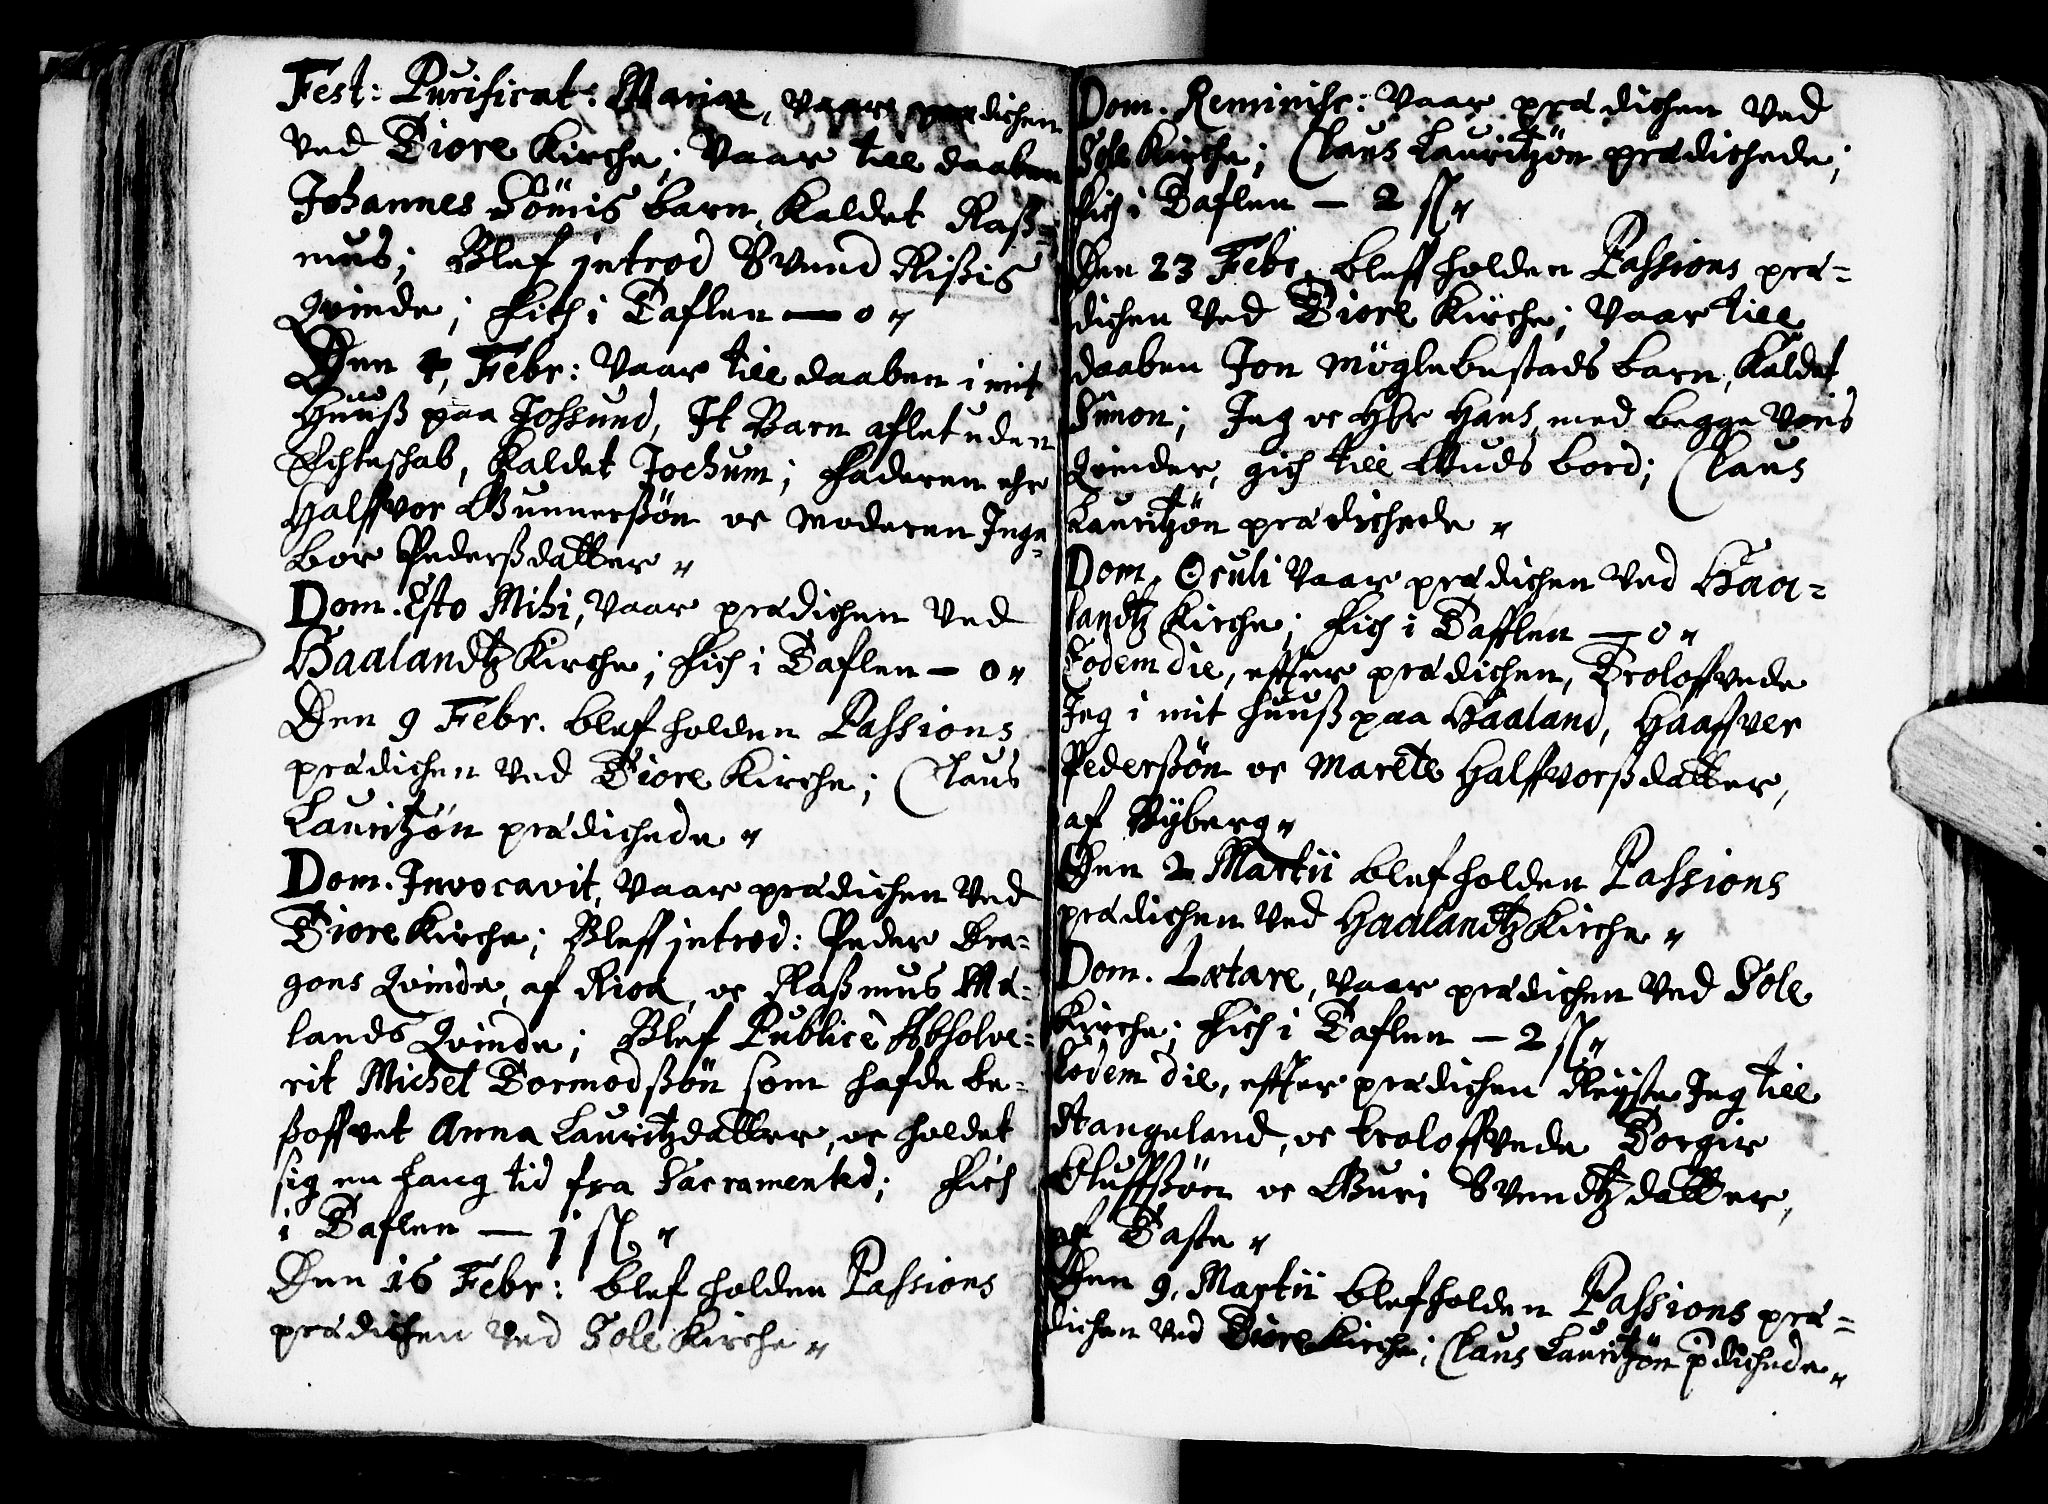 Fest: Purificat: Mariæ, Vaar prædichen
Ved Tiore Kirche; Vaar till daaben
Johannes Sömis barn, Kaldet Raß=
mus; Blef introd Svend Rißis
Qvinde; Fich i Taflen — 0 "
Den 4, Febr: Vaar till daaben i mit
Huuß paa Jossund, It Barn aflet uden
Echteschab, Kaldet Jochum; Faderen ehr
Halffvor Gunnerßön oc Moderen Inge=
bor Pederßdatter "
Dom. Esto Mihi, Vaar prædichen Ved
Haalandtz Kirche; Fich i Taflen — 0 "
Den 9 Febr. blef holden Passions
prædichen Ved Tiore Kirche; Claus
Lauritzön prædichede "
Dom. Invocavit, Vaar prædichen Ved
Tiore Kirche; Bleff introd: Peder Dra=
gons Qvinde, af Rioa, oc Raßmus Mæ=
lands Qvinde; Blef Publicè Absolve=
rit Michel Tormodßön som hafde be=
ßoffvet Anna Lauritzdatter, oc holdet
sig en lang tid fra Sacramented; Fich
i Taflen — j sl "
Den 16 Febr: blef holden Passions
prædichen Ved Sole Kirche "
Dom. Reminisc: Vaar prædichen Ved
Sole Kirche; Claus Lauritzön prædichede;
Fich i Taflen — 2 sl "
Den 23 Febr. bleff holden Passions præ=
dichen Ved Tiore Kirche; Vaar till
daaben Jon Möglebustads barn, Kaldet
Simon; Jeg oc Hbr Hans, med begge Voris
Qvinder, gich till Guds bord; Claus
Lauritzön prædichede "
Dom. Oculi Vaar prædichen Ved Haa=
landtz Kirche; Fich i Tafflen — 0 "
Eodem die, effter prædichen, Troloffvede
Jeg i mit huuß paa Haaland, Haaffver
Pederßön oc Marete Halffvorßdatter,
af Ryberg "
Den 2 Martii blef holden Passions
prædichen Ved Haalandtz Kirche "
Dom. Lætare, Vaar prædichen Ved Sole
Kirche; Fich i Taflen — 2 sl "
Eodem die, effter prædichen Reyste Jeg till
Stangeland, oc troloffvede Torgier
Oluffßön oc Guri Svendtzdatter,
af Taste "
Den 9, Martii blef holden Passions præ=
dichen Ved Tiore Kirche; Claus Lauritzön p̄dichede "